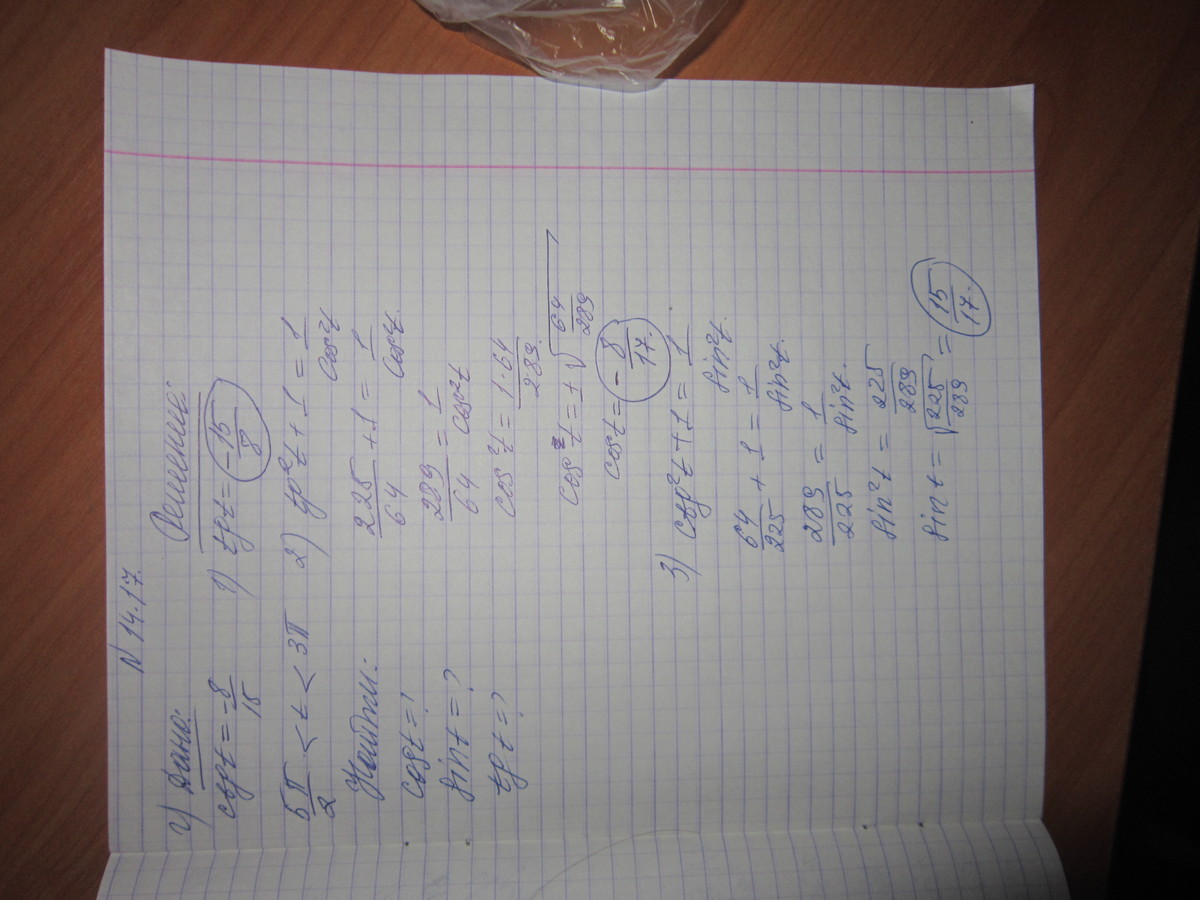 N 14.17.
г) Дано:
ctgt = -8/15
5π/2 < t < 3π
Найти:
cost = ?
sint = ?
tgt = ?
Решение:
1) tgt = -15/8
2) tg²t + 1 = 1/cos²t
225/64 + 1 = 1/cos²t.
289/64 = 1/cos²t
cos²t = 1·64/289.
cos t = ±√64/289
cost = -8/17.
3) ctg²t + 1 = 1/sin²t.
64/225 + 1 = 1/sin²t.
289/225 = 1/sin²t.
sin²t = 225/289
sin t = √225/289 = 15/17.